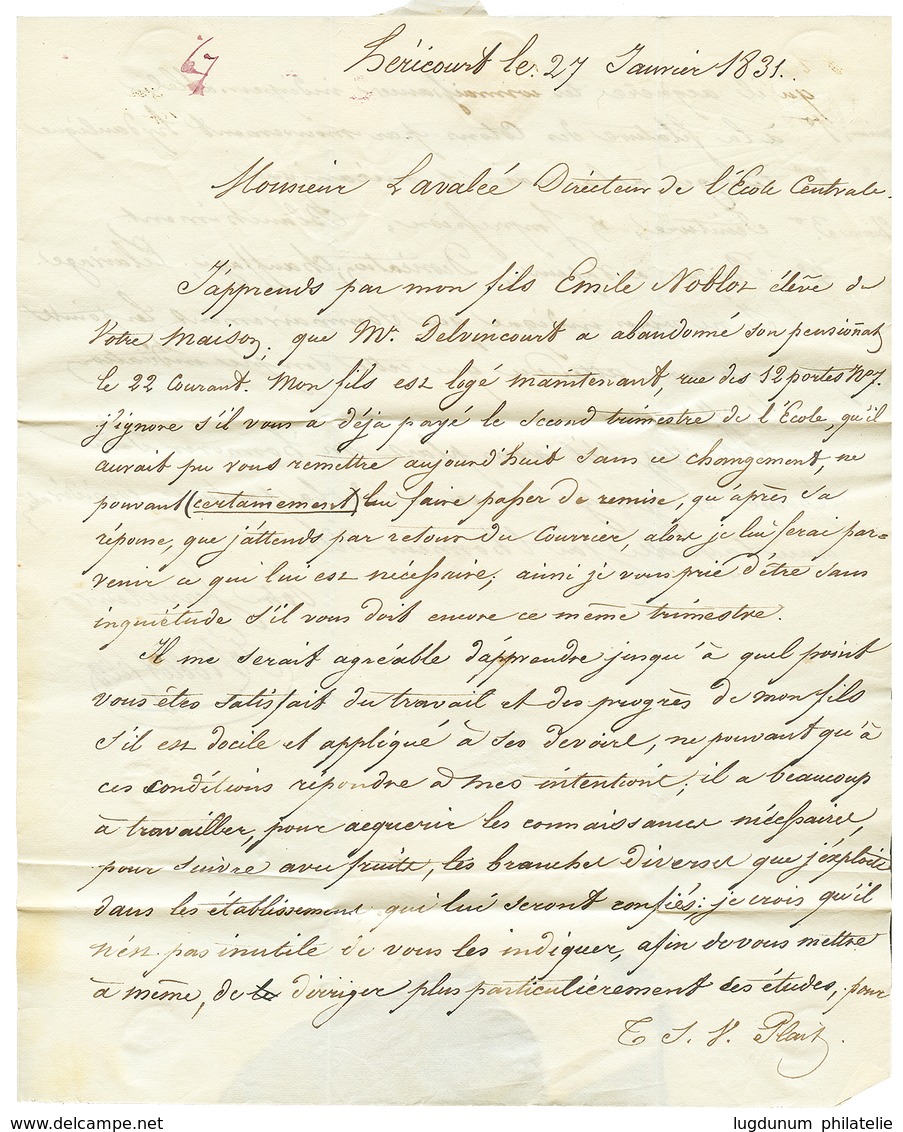 67
Héricourt le 27 Janvier 1831.
Monsieur Lavalée Directeur de l'École Centrale.
J'apprends par mon fils Emile Noblot élève de
Votre Maison, que Mr. Delvincourt a abandonné son pensionnat
le 22 Courant. Mon fils est logé maintenant, rue des 12 portes No 7.
j'ignore s'il vous a déja payé le second trimestre de l'École, qu'il
aurait pu vous remettre aujourd'huit sans ce changement, ne
pouvant (certainement) lui faire passer de remise, qu'après sa
réponse, que j'attends par retour du Courrier, alors je lui ferai par=
venir ce qui lui est nécessaire; ainsi je vous prie d'être sans
inquiétude s'il vous doit encore ce même trimestre.
Il me serait agréable d'apprendre jusqu'à quel point
vous êtes satisfait du travail et des progrès de mon fils
s'il est docile et appliqué à ses devoirs, ne pouvant qu'à
ces conditions répondre à mes intentions; il a beaucoup
à travailler, pour acquerir les connaissances nécessaires,
pour suivre avec fruits, les branches diverses que j'exploite
dans les établissements qui lui seront confiés; je crois qu'il
n'est pas inutile de vous les indiquer, afin de vous mettre
à même, de dirriger plus particulièrement ses études, pour
T. S. V. Plait.
delcampe.net
lugdunum philatelie